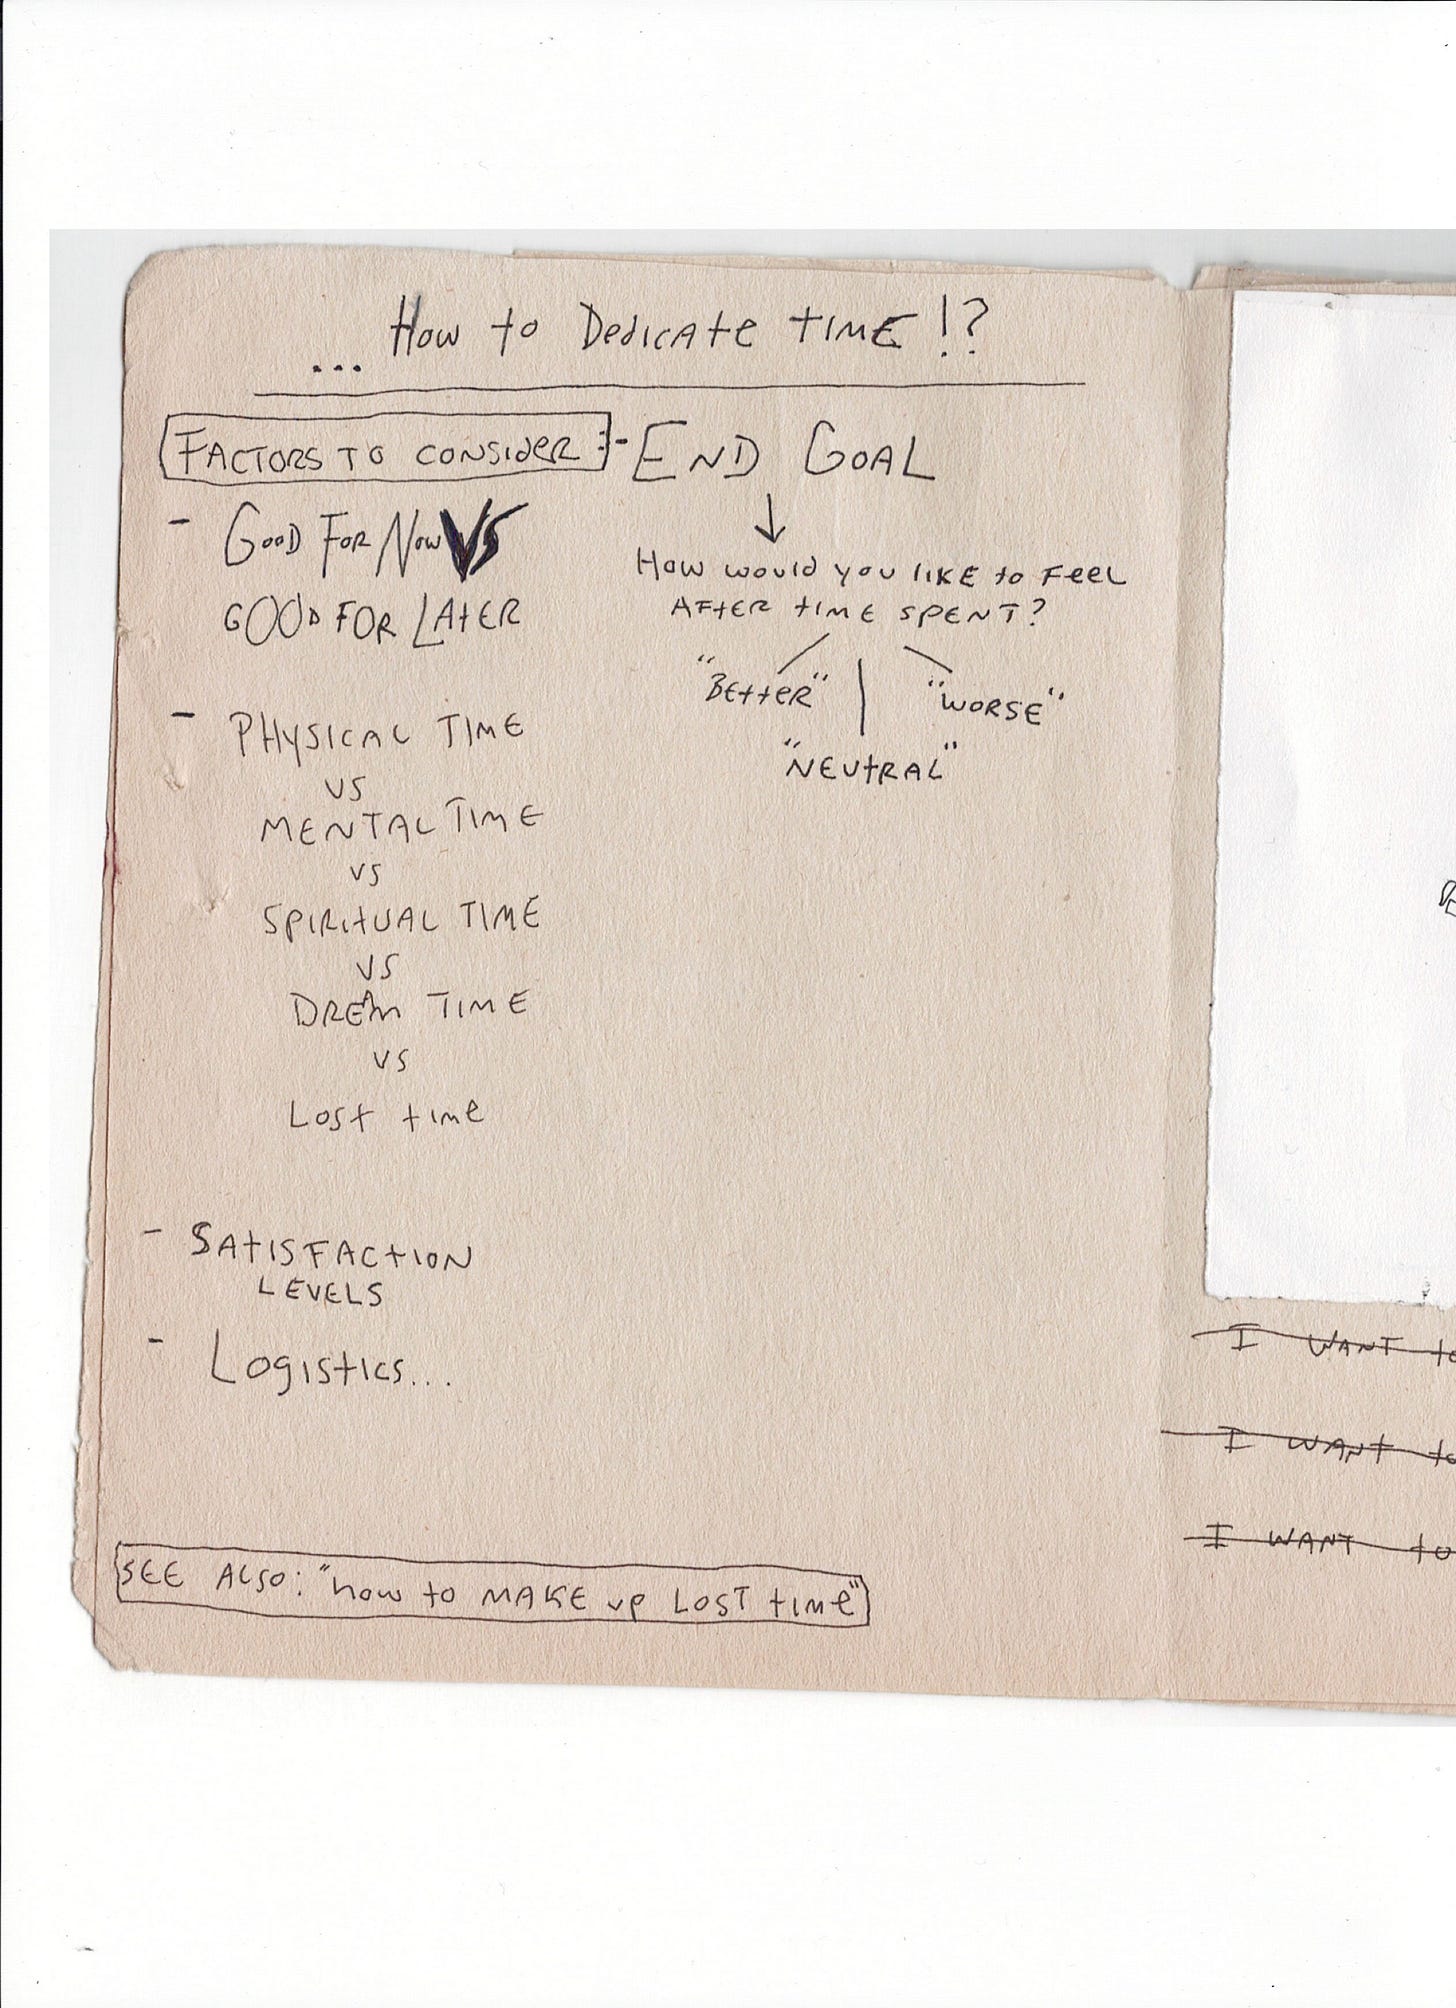 ... How to Dedicate TIME!?
FACTORS TO CONSIDER:
- Good For Now VS
Good For Later
- PHYSICAL TIME
VS
MENTAL TIME
VS
SPIRITUAL TIME
VS
DREAM TIME
VS
Lost time
- SATISFACTION
LEVELS
- Logistics...
- END GOAL
How would you like to Feel
AFTER time SPENT?
"BETTER" "WORSE"
"NEUTRAL"
SEE ALSO: "how to MAKE up LOST time"
I WANT to
I WANT to
I WANT to